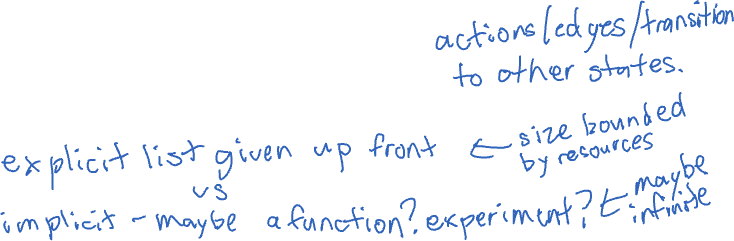 actions/edges/transition
to other states.
explicit list given up front ← size bounded
by resources
vs
implicit - maybe a function? experiment? ← maybe
infinite